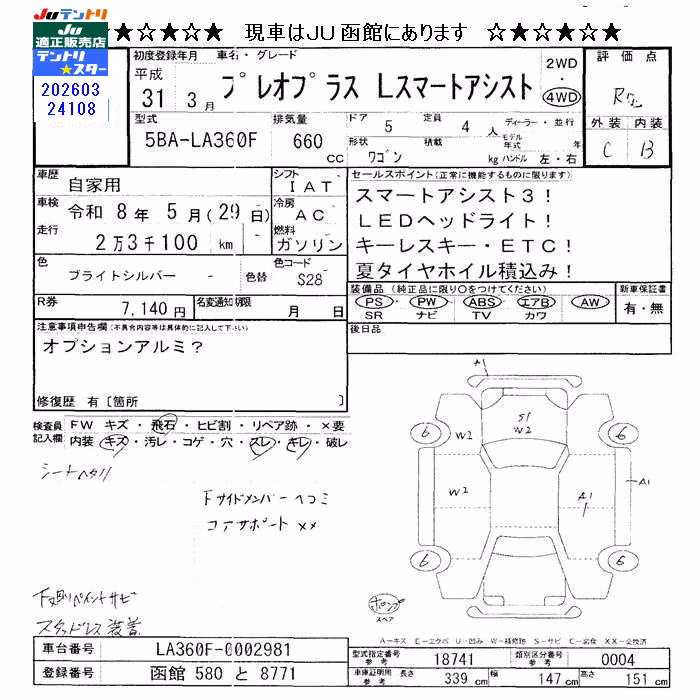 Juテントリ
Ju
適正販売店
テントリ
★スター
★☆★☆★ 現車はＪＵ函館にあります ☆★☆★☆★
202603
24108
初度登録年月
平成
31 3月
車名・グレード
プレオプラス Lスマートアシスト
2WD
・
4WD
評価点
R
型式
5BA-LA360F
排気量
660
cc
ドア 5
定員 4 人
形状 ワゴン
積載 kg
ディーラー・並行
モデル
年式 年
ハンドル 左・右
外装 内装
C B
車歴
自家用
シフト
IAT
車検
令和 8年 5月(29日)
冷房
AC
走行
2万3千100 km
燃料
ガソリン
色
ブライトシルバー -
色替
色コード
S28
R券
7,140円
名変通知期限
月 日
セールスポイント(正常に機能するものに限ります)
スマートアシスト３！
ＬＥＤヘッドライト！
キーレスキー・ＥＴＣ！
夏タイヤホイル積込み！
装備品 (純正品に限り〇をつけてください)
PS・PW・ABS・エアB・AW
SR ナビ TV カワ
新車保証書
有・無
後日品
注意事項申告欄(不具合内容等は具体的に記入して下さい)
オプションアルミ？
修復歴 有〔箇所 〕
検査員
記入欄
FW キズ・飛石・ヒビ割・リペア跡・×要
内装・キズ・汚レ・コゲ・穴・スレ・キレ・破レ
シートヘタリ
Fサイドメンバーヘコミ
コアサポート ××
下廻りペイントサビ
スタッドレス装着
A1
S1
W2
W2
W2
A1
A1
6
6
6
6
スペア
A-キズ E-エクボ U-凹み W-補修跡 S-サビ C-腐食 XX-交換済
車台番号
LA360F-0002981
登録番号
函館 580 と 8771
型式指定番号
参考
18741
類別区分番号
参考
0004
車庫証明用
参考
長さ 339 cm
幅 147 cm
高さ 151 cm